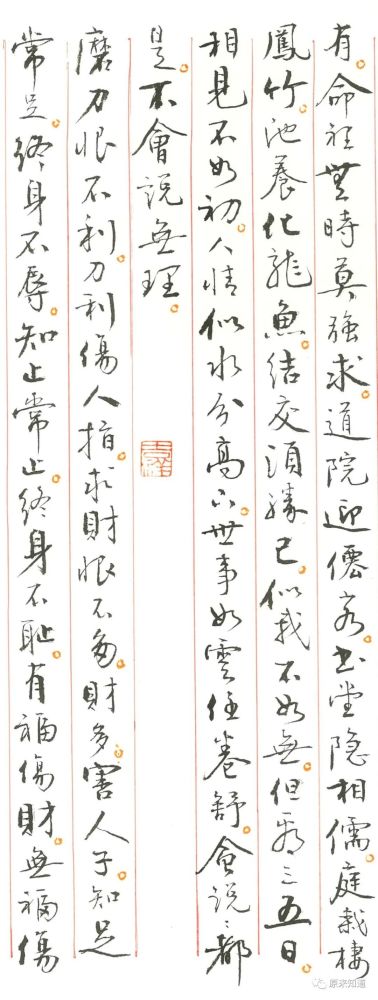 有。命裡無時莫強求。道院迎僊客。书堂隐相儒。庭栽棲
鳳竹池養化龍魚。結交須勝己。似我不如無。但看三五日
相見不如初。人情似水分高下。世事如雲任卷舒。會説〻都
是。不會説無理。
磨刀恨不利。刀利傷人指。求財恨不多。財多害人子。知足
常足。終身不辱。知止常止。終身不耻。有福傷財。無福傷
原来知道